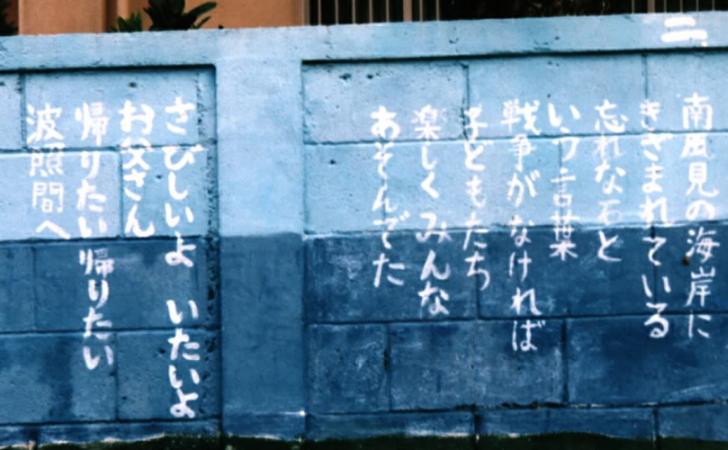 二、
南風見の海岸に
きざまれている
忘れな石と
いう言葉
戦争がなければ
子どもたち
楽しくみんな
あそんでた
さびしいよ　いたいよ
お父さん
帰りたい帰りたい
波照間へ